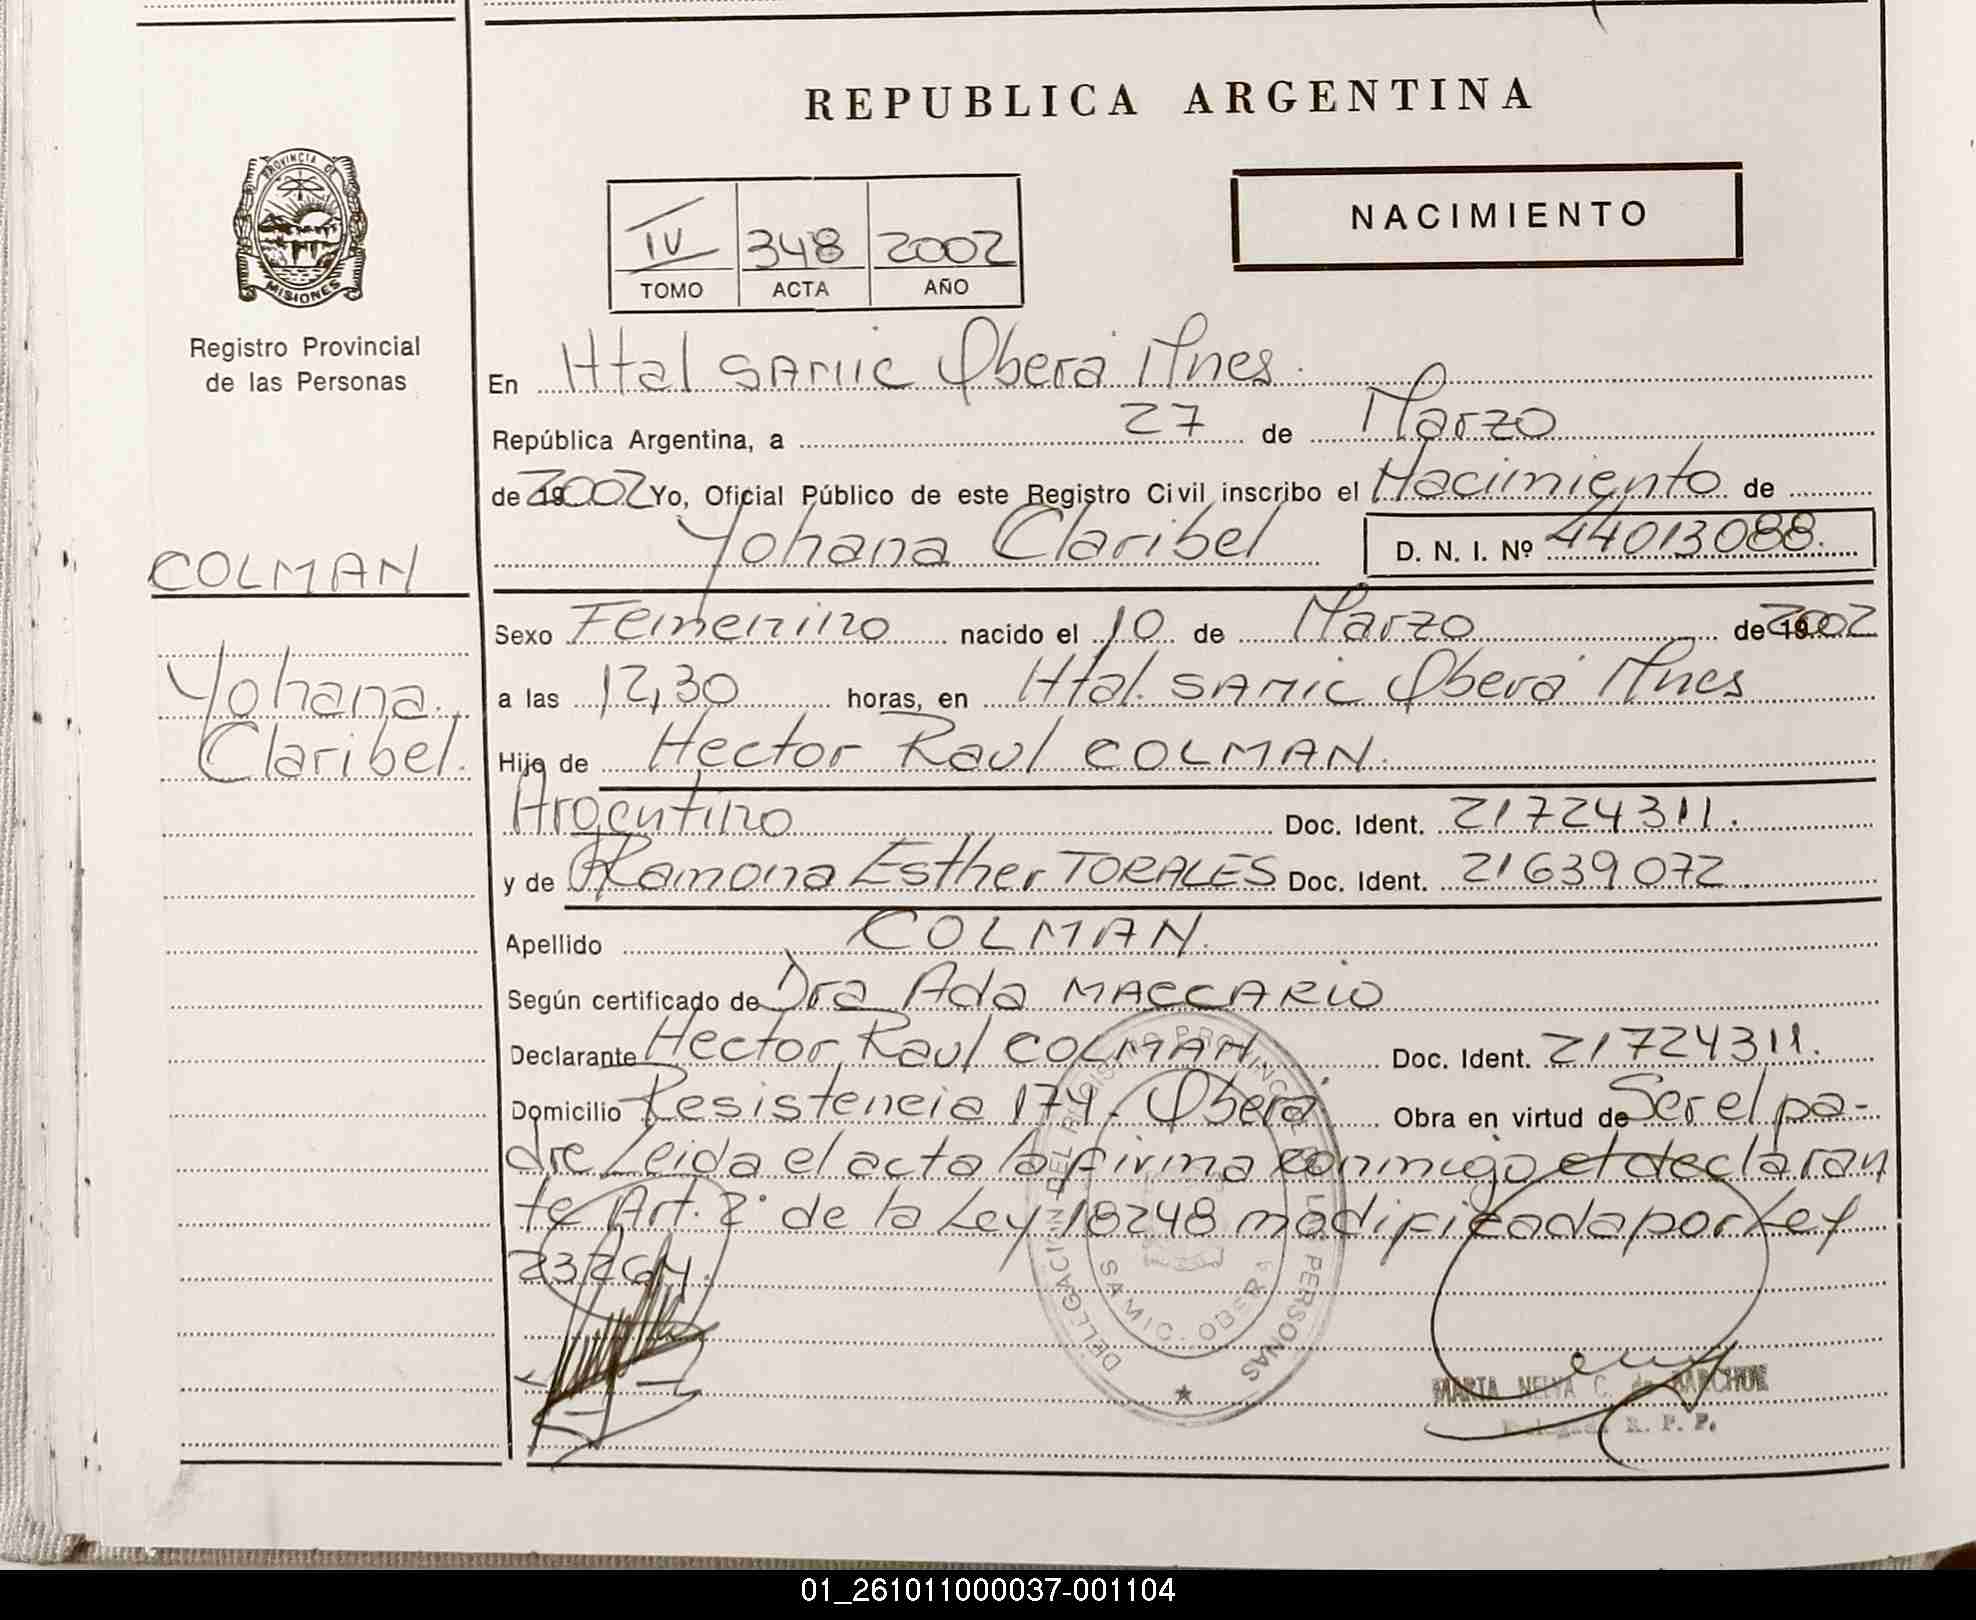 REPUBLICA ARGENTINA
PROVINCIA DE
MISIONES
Registro Provincial
de las Personas
IV 348 2002
TOMO ACTA AÑO
NACIMIENTO
En Htal SAMIC Oberá Mnes.
República Argentina, a 27 de Marzo
de 2002 Yo, Oficial Público de este Registro Civil inscribo el Nacimiento de
Yohana Claribel D. N. I. Nº 44013088.
COLMAN
Yohana
Claribel.
Sexo Femenino nacido el 10 de Marzo de 2002
a las 12,30 horas, en Htal. SAMIC Oberá Mnes
Hijo de Hector Raul COLMAN.
Argentino Doc. Ident. 21724311.
y de Ramona Esther TORALES Doc. Ident. 21639072
Apellido COLMAN.
Según certificado de Dra Ada MACCARIO
Declarante Hector Raul COLMAN Doc. Ident. 21724311.
Domicilio Resistencia 174. Oberá Obra en virtud de Ser el pa-
dre Leida el acta la firma conmigo el declaran
te Art. 2° de la Ley 18248 modificada por Ley
23264.
DELEGACION DEL REGISTRO PROVINCIAL DE LAS PERSONAS
SAMIC - OBERA
MARTA NELVA C. de
R. P. P.
01_261011000037-001104